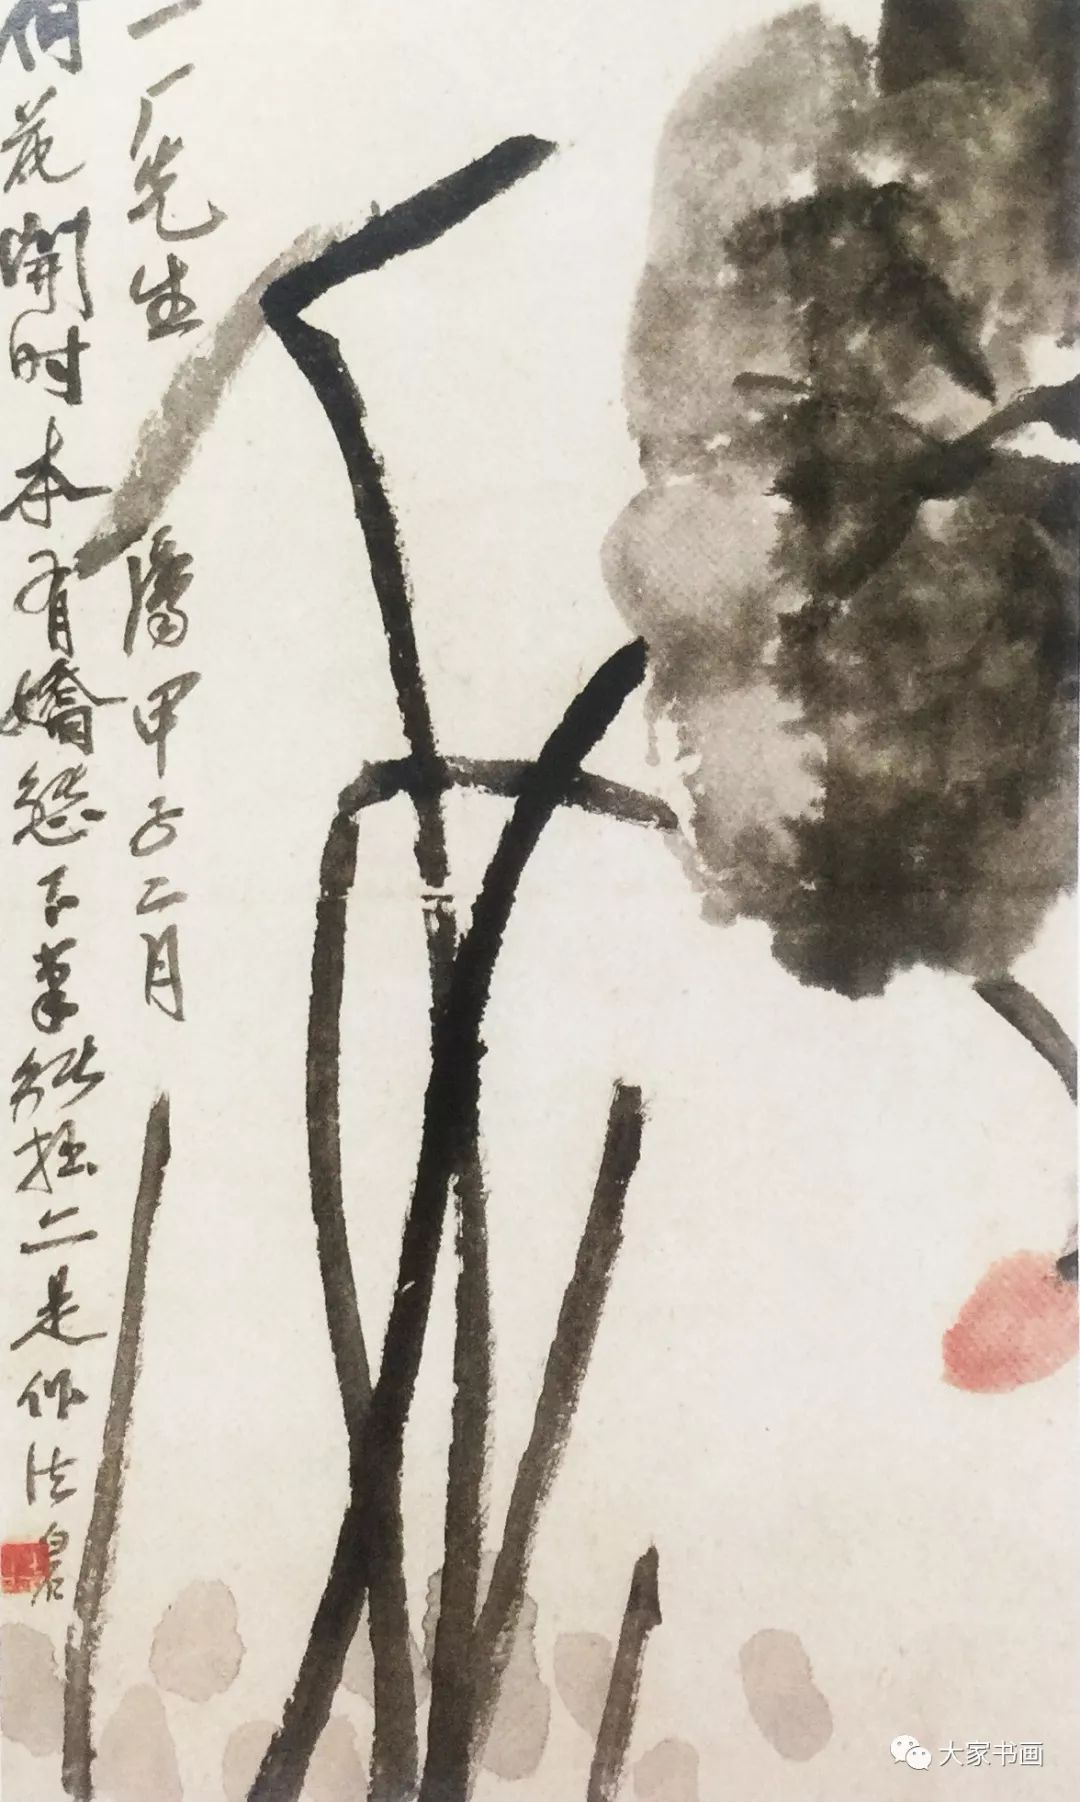 一厂先生 属甲子二月
荷花開时本有嬌態下筆能拙亦是作法白石
大家书画